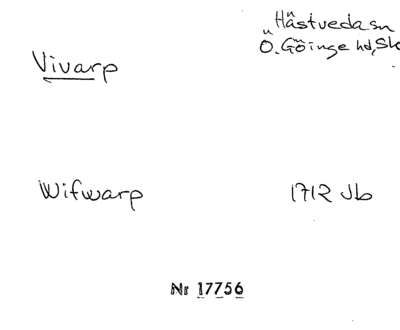 Hästveda sn
Vivarp
Ö. Göinge hd, Sk
Wifwarp
1712 Jb
Nr 17756